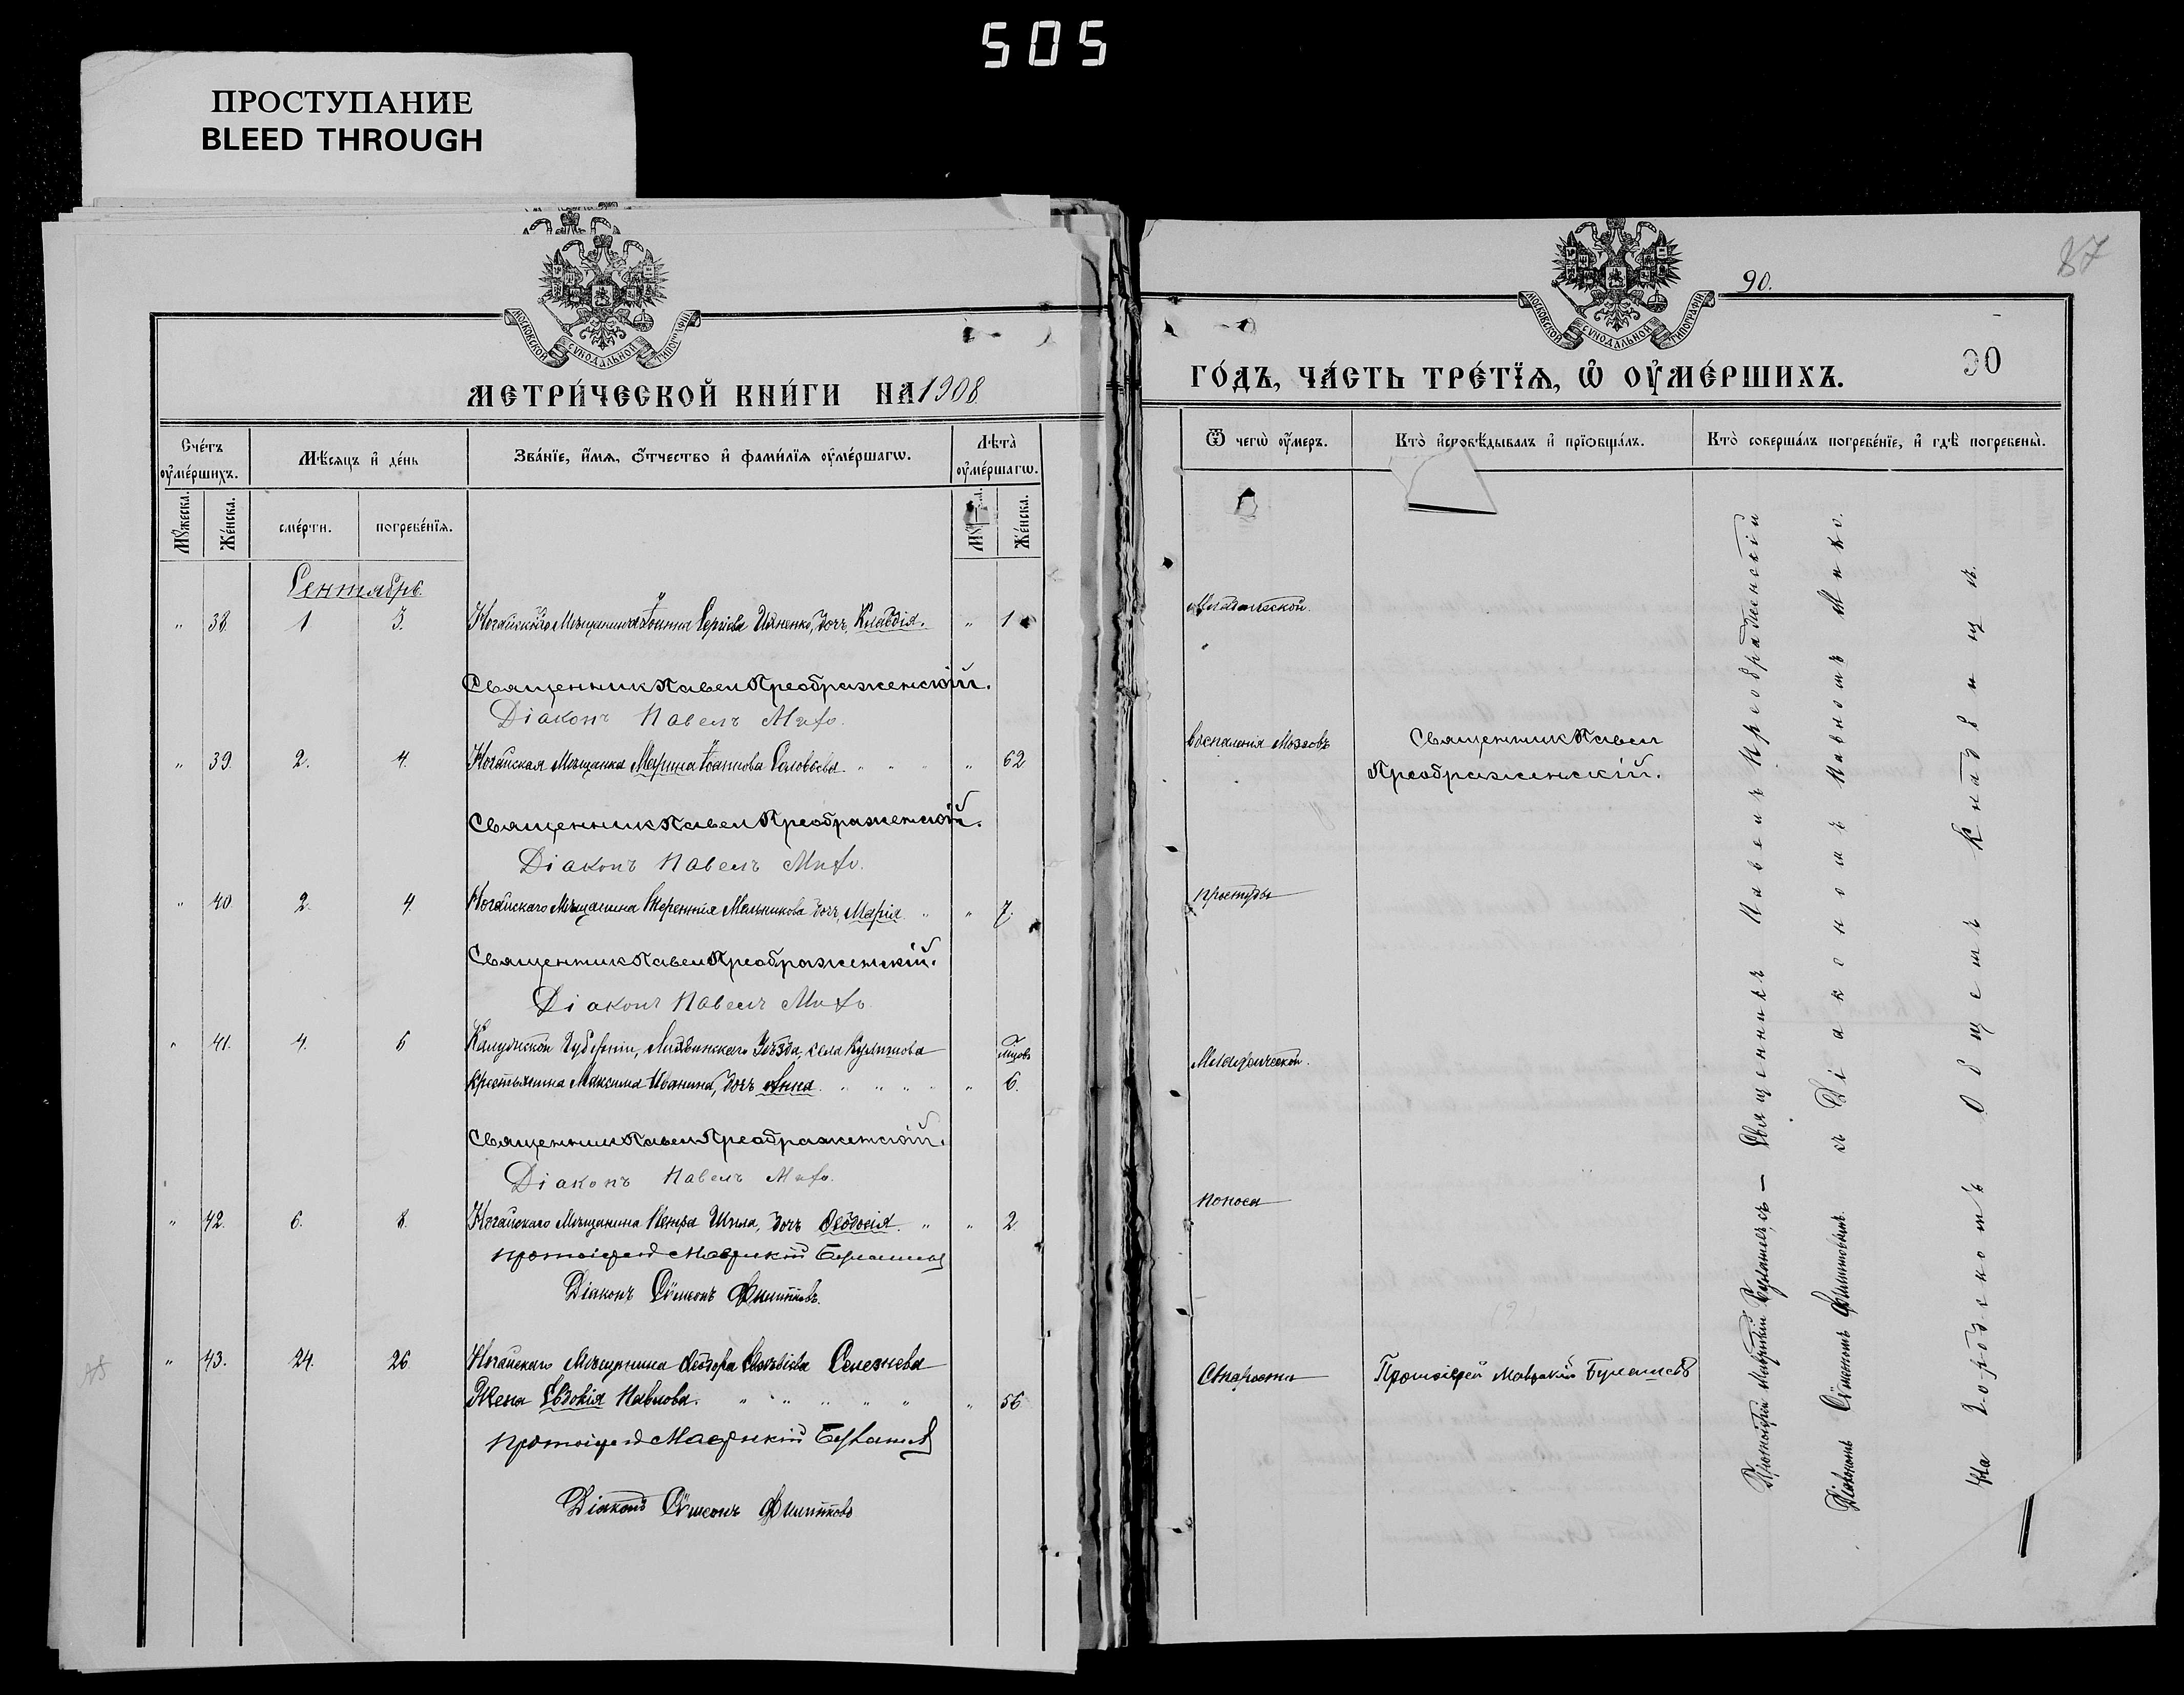 505
ПРОСТУПАНИЕ
BLEED THROUGH
МОСКОВСКОЙ СѴНОДАЛЬНОЙ ТИПОГРАФІИ
МЕТРИ́ЧЕСКОЙ КНИ́ГИ НА 1908
Сче́тъ оу҆ме́ршихъ.
Мѣ́сяцъ и҆ де́нь
Зва́нїе, и҆́мѧ, ѻ҆́тчество и҆ фами́лїѧ оу҆ме́ршагѡ.
Лѣ́та оу҆ме́ршагѡ.
Мꙋ́жеска.
Же́нска.
сме́рти.
погребе́нїѧ.
Же́нска.
Сентябрь.
" 38. 1 3. Ногайскаго Мѣщанина Іоанна Сергіева дочь, Клавдія. " 1
Священник Павел Преображенскій.
Діаконъ Павелъ
" 39. 2. 4. Ногайская Мѣщанка Марина Іоаннова Соловьева " " 62
Священник Павел Преображенскій.
Діаконъ Павелъ
" 40 2. 4. Ногайскаго Мѣщанина Терентія Мельникова дочь, Марія " " 7.
Священник Павел Преображенскій.
Діаконъ Павелъ
" 41. 4. 6 Калужской Губерніи, Лихвинскаго Уѣзда, села
крестьянина Максима Иванина, дочь Анна " " 6.
Священник Павел Преображенскій.
Діаконъ Павелъ
" 42. 6. 8. Ногайскаго Мѣщанина Петра Шила, дочь Ѳеодосія " " 2
протоіерей Маврикій
Діаконъ Сѵмеонъ Филипповъ.
" 43. 24. 26 Ногайскаго Мѣщанина Ѳеодора Селезнева
жена Евдокія Павлова. " " " " " " 56
протоіерей Маврикій
Діаконъ Сѵмеонъ Филипповъ
МОСКОВСКОЙ СѴНОДАЛЬНОЙ ТИПОГРАФІИ
90.
87
90
ГО́ДЪ, ЧА́СТЬ ТРЕ́ТЇѦ, Ѡ҆ ОУ҆МЕ́РШИХЪ.
Ѿ чегѡ̀ оу҆́меръ.
Кто̀ и҆сповѣ́дывалъ и҆ прїѻбща́лъ.
Кто̀ соверша́лъ погребе́нїе, и҆ гдѣ̀ погребены̀.
Младенческой.
Воспаленія Мозговъ
Священник Павел
Преображенскій.
простуды
Младенческой.
поноса
Старости
Протоіерей Маврикій
Протоіерей Маврикій съ — Священникъ Павелъ Преображенскій
Діакономъ Сѵмеономъ Филипповымъ. съ Діакономъ
На городскомъ Общемъ Кладбищѣ.